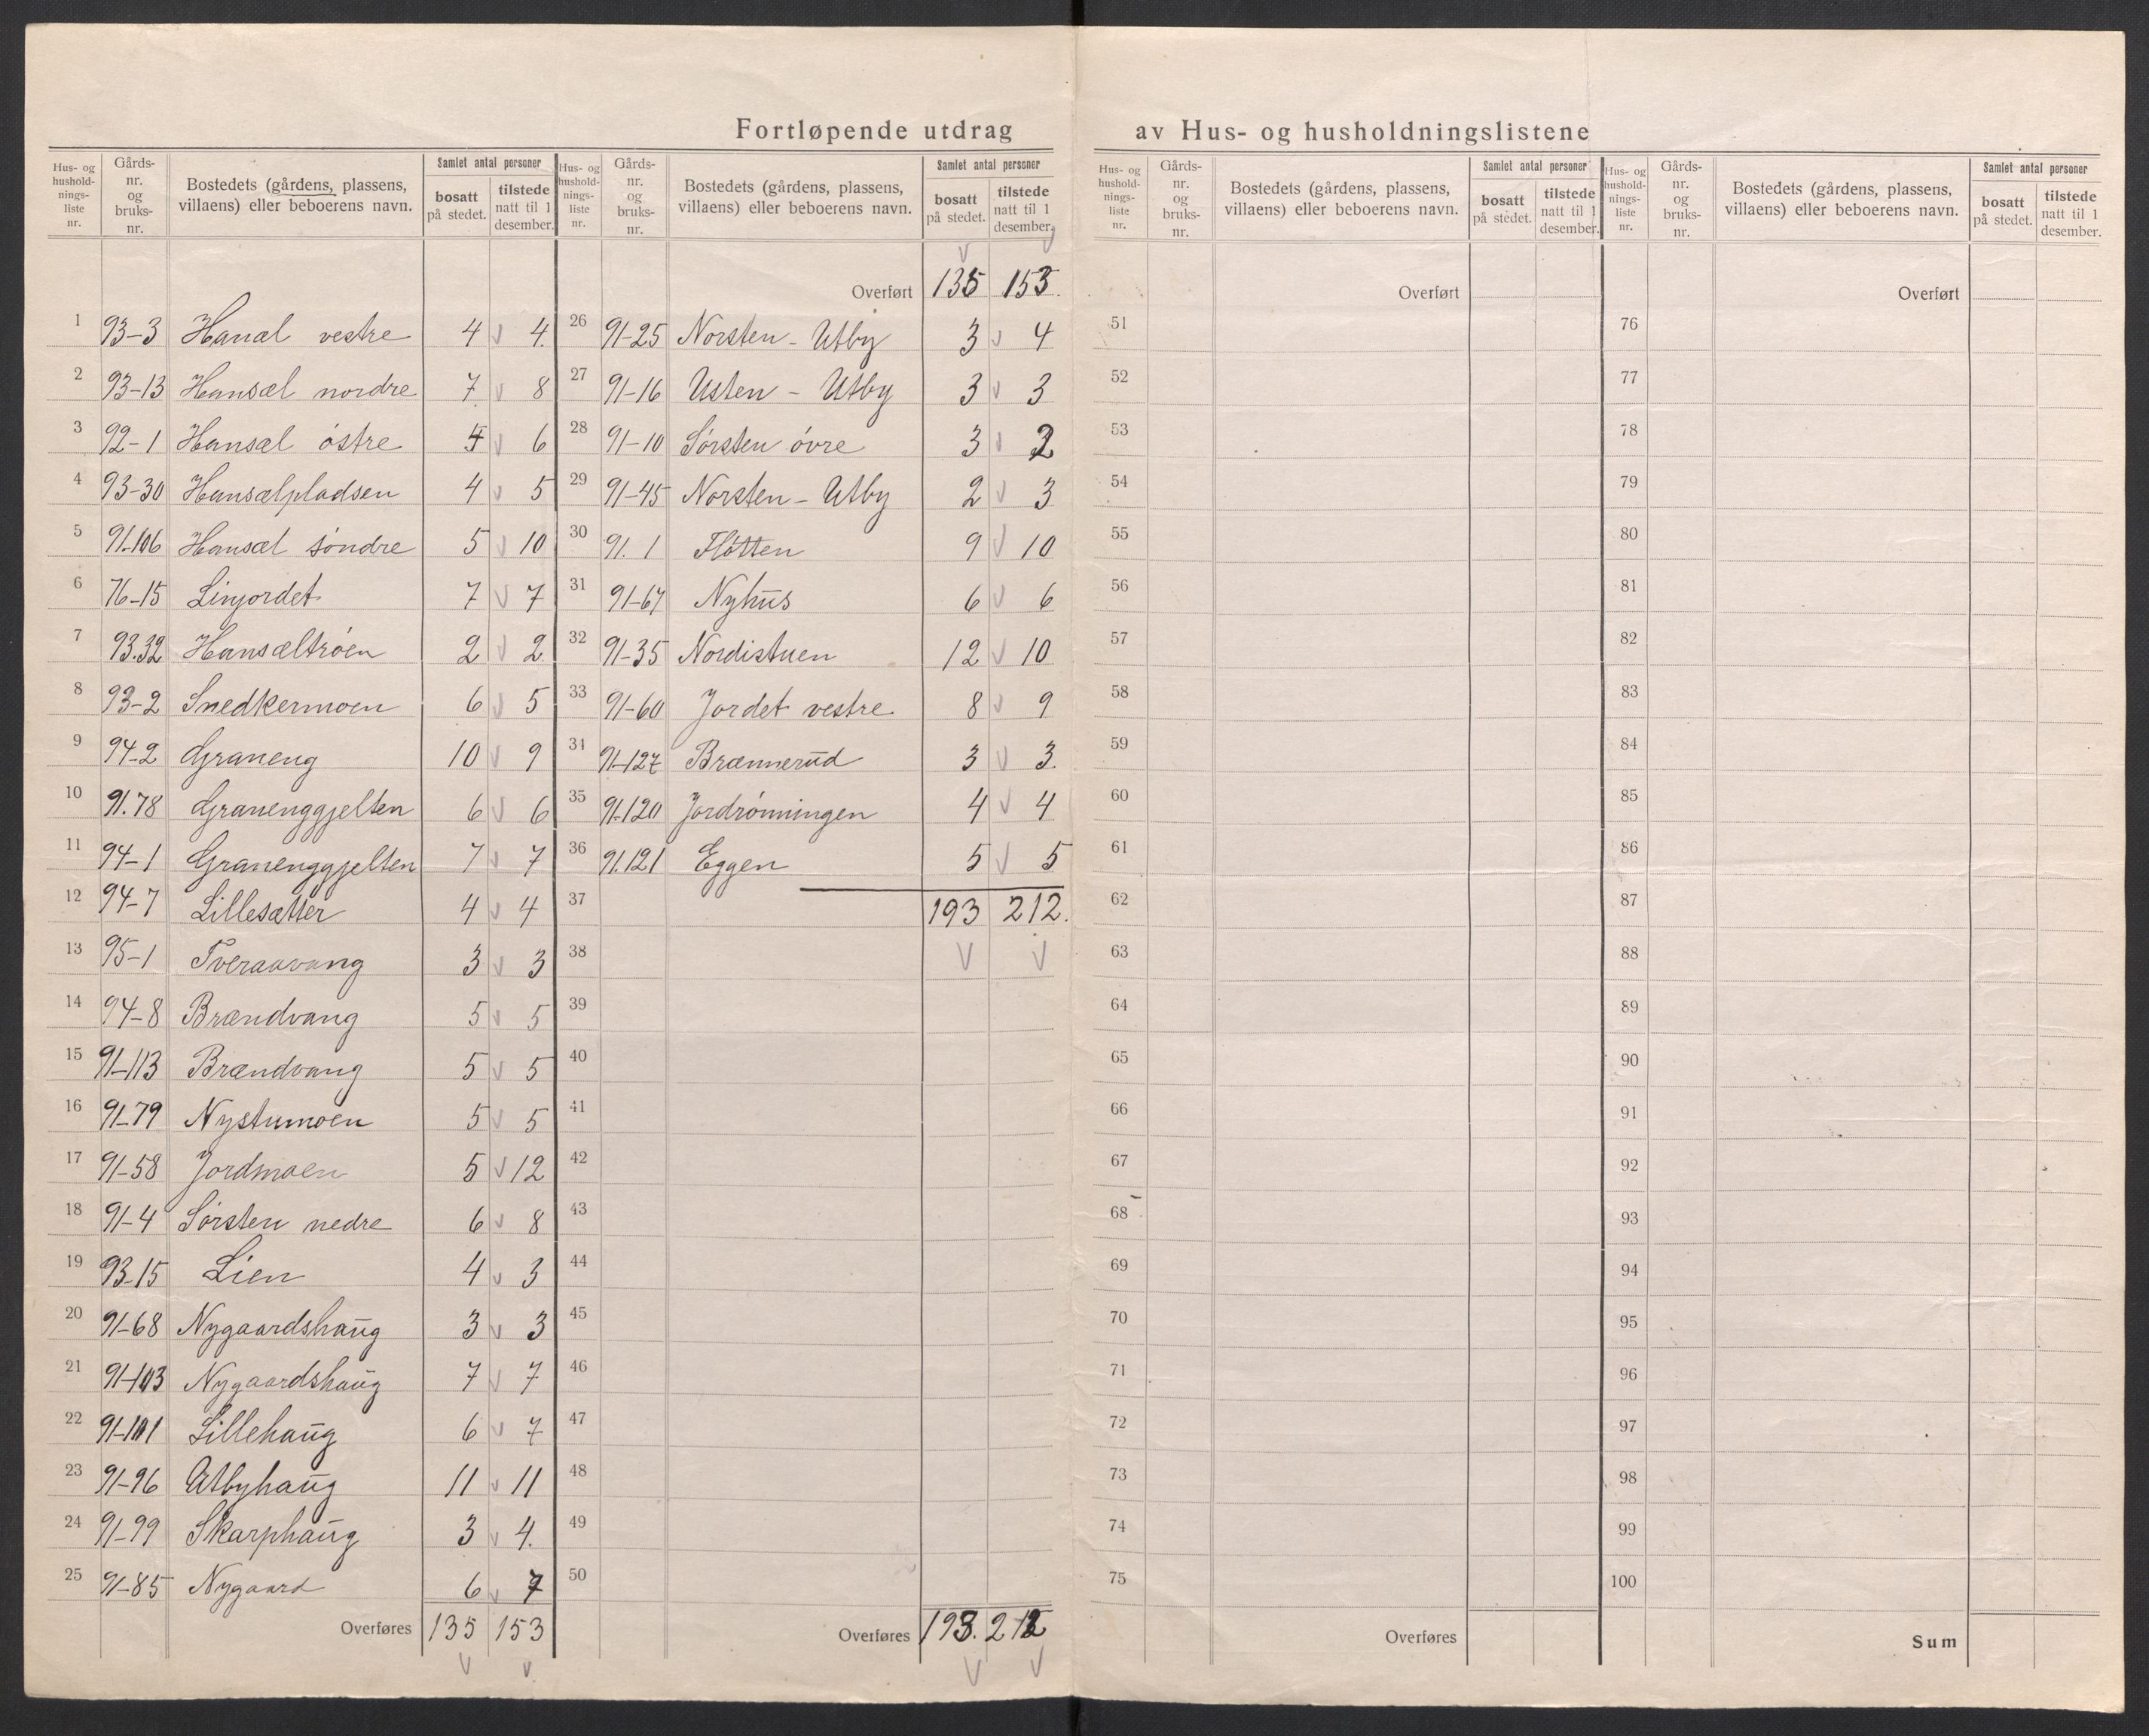 Fortløpende utdrag av Hus- og husholdningslistene
Hus- og hushold-nings-liste nr. | Gårds-nr. og bruks-nr. | Bostedets (gårdens, plassens, villaens) eller beboerens navn. | Samlet antal personer | bosatt på stedet. | tilstede natt til 1 desember.
1 93-3 Hanæl vestre 4 v 4.
2 93-13 Hansæl nordre 7 v 8
3 92-1 Hansæl östre 4 v 6
4 93-30 Hansælpladsen 4 v 5
5 91-106 Hansæl söndre 5 v 10
6 76-15 Linjordet 7 v 7
7 93.32 Hansæltröen 2 v 2
8 93-2 Snedkermoen 6 v 5
9 94-2 Graneng 10 v 9
10 91.78 Granenggjelten 6 v 6
11 94-1 Granenggjelten 7 v 7
12 94-7 Lillesætter 4 v 4
13 95-1 Tveraavang 3 v 3
14 94-8 Brændvang 5 v 5
15 91-113 Brændvang 5 v 5
16 91-79 Nystumoen 5 v 5
17 91-58 Jordmoen 5 v 12
18 91-4 Sörsten nedre 6 v 8
19 93-15 Lien 4 v 3
20 91-68 Nygaardshaug 3 v 3
21 91-103 Nygaardshaug 7 v 7
22 91-101 Lillehaug 6 v 7
23 91-96 Utbyhaug 11 v 11
24 91-99 Skarphaug 3 v 4.
25 91-85 Nygaard 6 v 7
Overføres 135 153
v v
Hus- og hushold-nings-liste nr. | Gårds-nr. og bruks-nr. | Bostedets (gårdens, plassens, villaens) eller beboerens navn. | Samlet antal personer | bosatt på stedet. | tilstede natt til 1 desember.
v v
Overført 135 153.
26 91-25 Norsten - Utby 3 v 4
27 91-16 Usten - Utby 3 v 3
28 91-10 Sörsten övre 3 v 2
29 91-45 Norsten - Utby 2 v 3
30 91.1 Flötten 9 v 10
31 91-67 Nyhus 6 v 6
32 91-35 Nordistuen 12 v 10
33 91-60 Jordet vestre 8 v 9
34 91-127 Brænnerud 3 v 3
35 91-120 Jordrönningen 4 v 4
36 91.121 Eggen 5 v 5
37 193 212.
38 v v
39
40
41
42
43
44
45
46
47
48
49
50
Overføres 193. 212
v v
Hus- og hushold-nings-liste nr. | Gårds-nr. og bruks-nr. | Bostedets (gårdens, plassens, villaens) eller beboerens navn. | Samlet antal personer | bosatt på stedet. | tilstede natt til 1 desember.
Overført
51
52
53
54
55
56
57
58
59
60
61
62
63
64
65
66
67
68
69
70
71
72
73
74
75
Overføres
Hus- og hushold-nings-liste nr. | Gårds-nr. og bruks-nr. | Bostedets (gårdens, plassens, villaens) eller beboerens navn. | Samlet antal personer | bosatt på stedet. | tilstede natt til 1 desember.
Overført
76
77
78
79
80
81
82
83
84
85
86
87
88
89
90
91
92
93
94
95
96
97
98
99
100
Sum